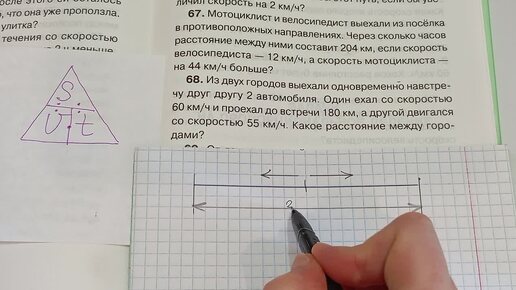 , что она уже проползла.
улитка?
течения со скоростью
личил скорость на 2 км/ч?
67. Мотоциклист и велосипедист выехали из посёлка
в противоположных направлениях. Через сколько часов
расстояние между ними составит 204 км, если скорость
велосипедиста — 12 км/ч, а скорость мотоциклиста —
на 44 км/ч больше?
68. Из двух городов выехали одновременно навстре-
чу друг другу 2 автомобиля. Один ехал со скоростью
60 км/ч и проехал до встречи 180 км, а другой двигался
со скоростью 55 км/ч. Какое расстояние между горо-
дами?
S
v t